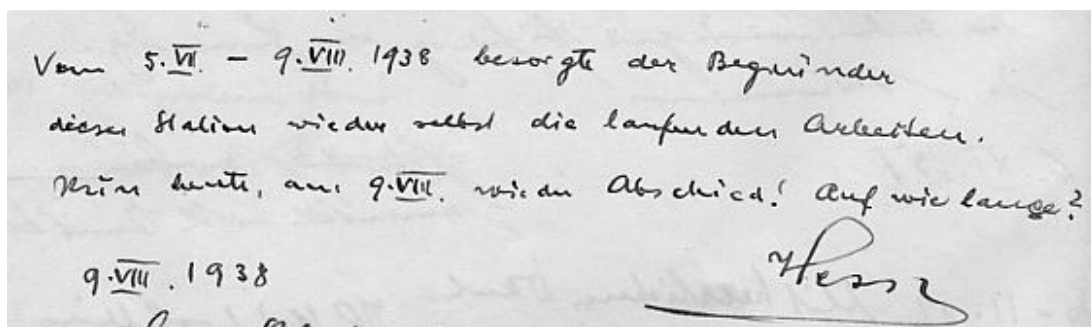 Vom 5.VII. – 9.VIII. 1938 besorgte der Begründer
dieser Station wieder selbst die laufenden Arbeiten.
Nun heute, am 9.VIII. wieder Abschied! Auf wie lange?
9.VIII.1938
Hess